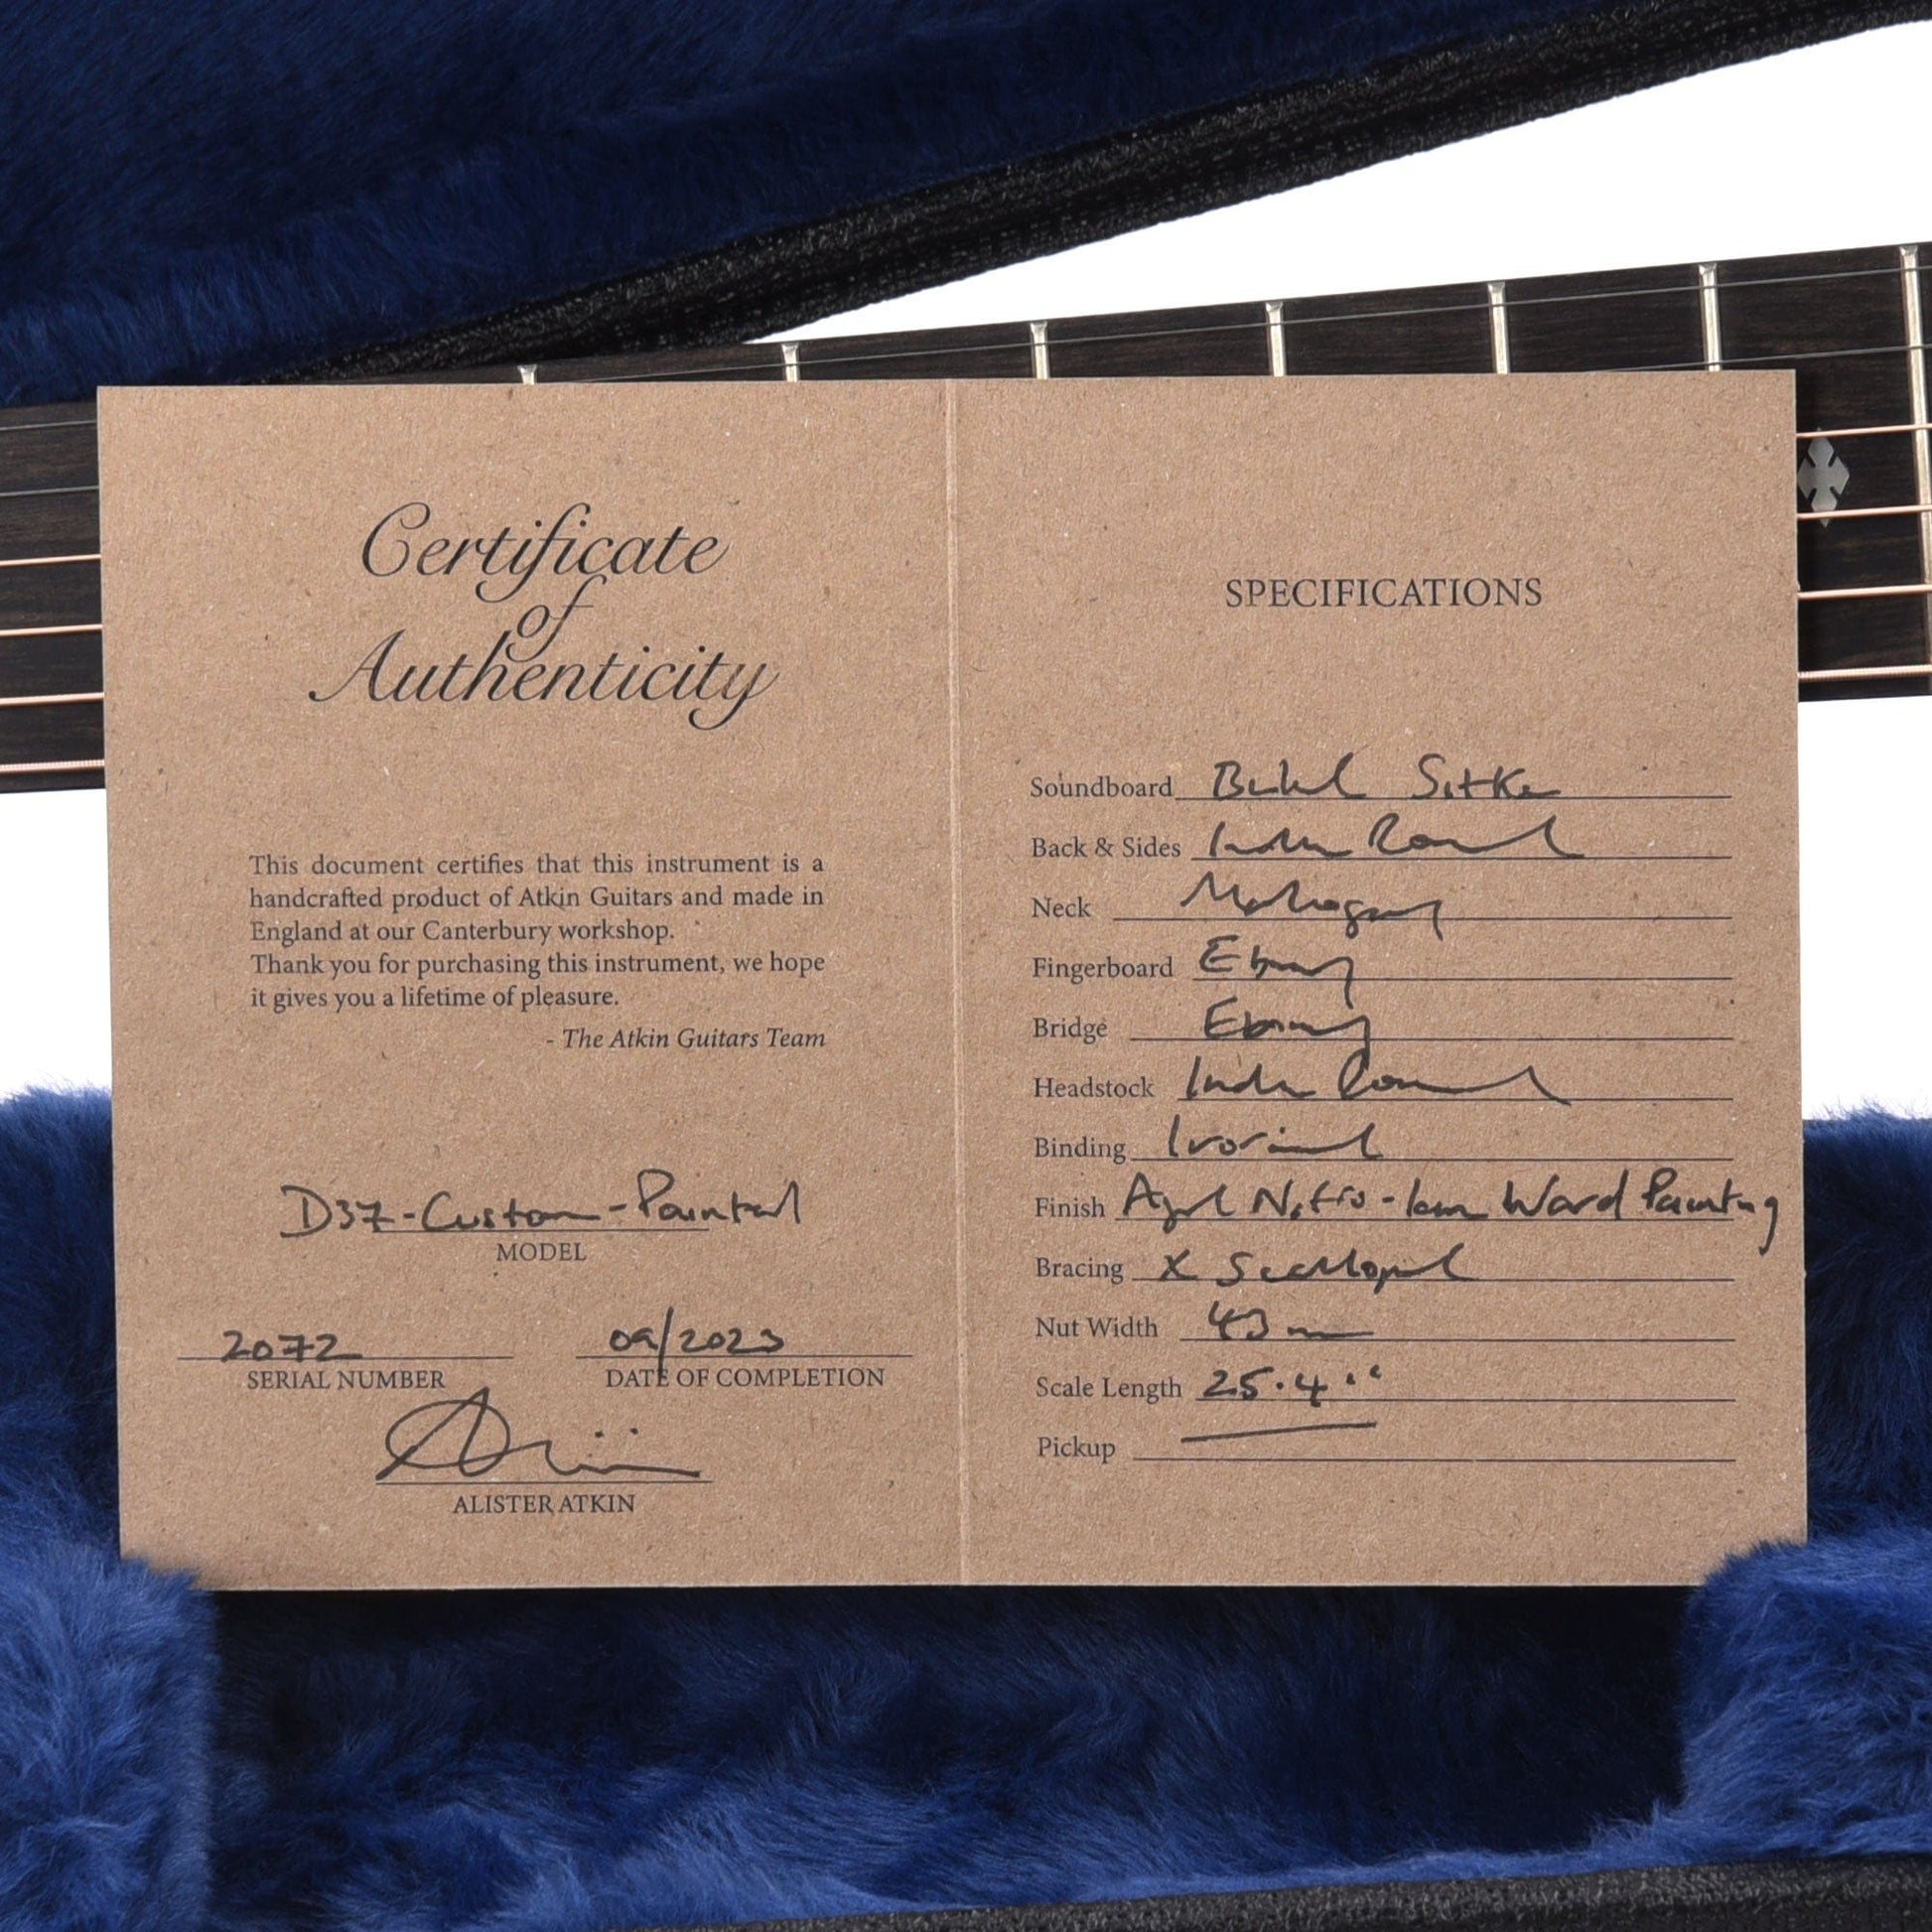 Certificate
of
Authenticity
This document certifies that this instrument is a
handcrafted product of Atkin Guitars and made in
England at our Canterbury workshop.
Thank you for purchasing this instrument, we hope
it gives you a lifetime of pleasure.
- The Atkin Guitars Team
D37-Custom-Painted
MODEL
2072
SERIAL NUMBER
09/2023
DATE OF COMPLETION
ALISTER ATKIN
SPECIFICATIONS
Soundboard Baked Sitka
Back & Sides Indian Rosewood
Neck Mahogany
Fingerboard Ebony
Bridge Ebony
Headstock Indian Rosewood
Binding Ivoroid
Finish Aged Nitro - Ward Painting
Bracing X Scalloped
Nut Width 43mm
Scale Length 25.4"
Pickup